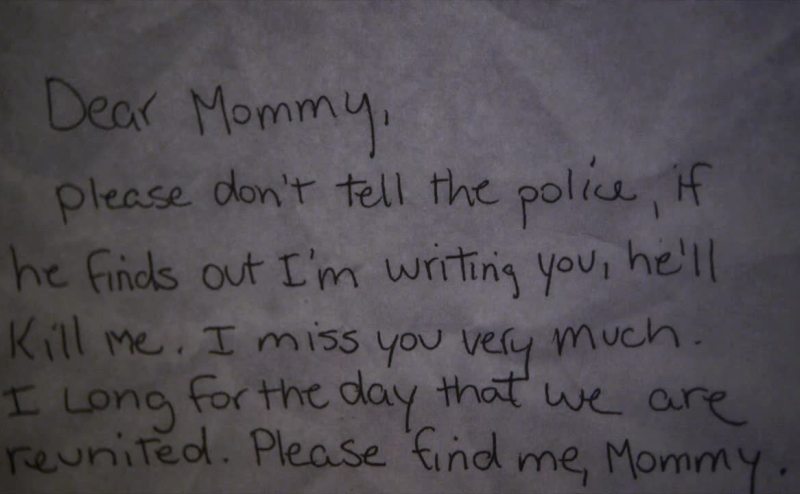 Dear Mommy,
please don't tell the police, if
he finds out I'm writing you, he'll
Kill me. I miss you very much.
I Long for the day that we are
reunited. Please find me, Mommy.